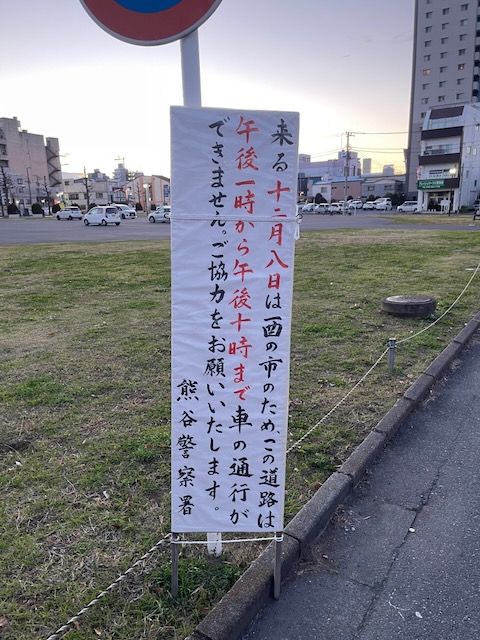 来る十二月八日は酉の市のため、この道路は
午後一時から午後十時まで車の通行が
できません。ご協力をお願いいたします。
熊谷警察署